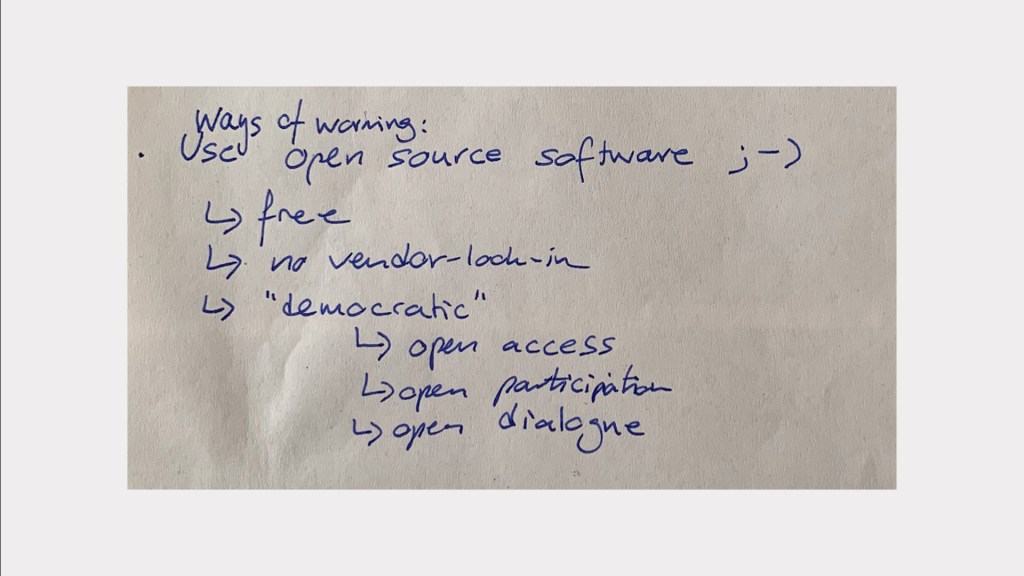 Ways of working:
· Use open source software ;-)
↳ free
↳ no vendor-lock-in
↳ "democratic"
↳ open access
↳ open participation
↳ open dialogue